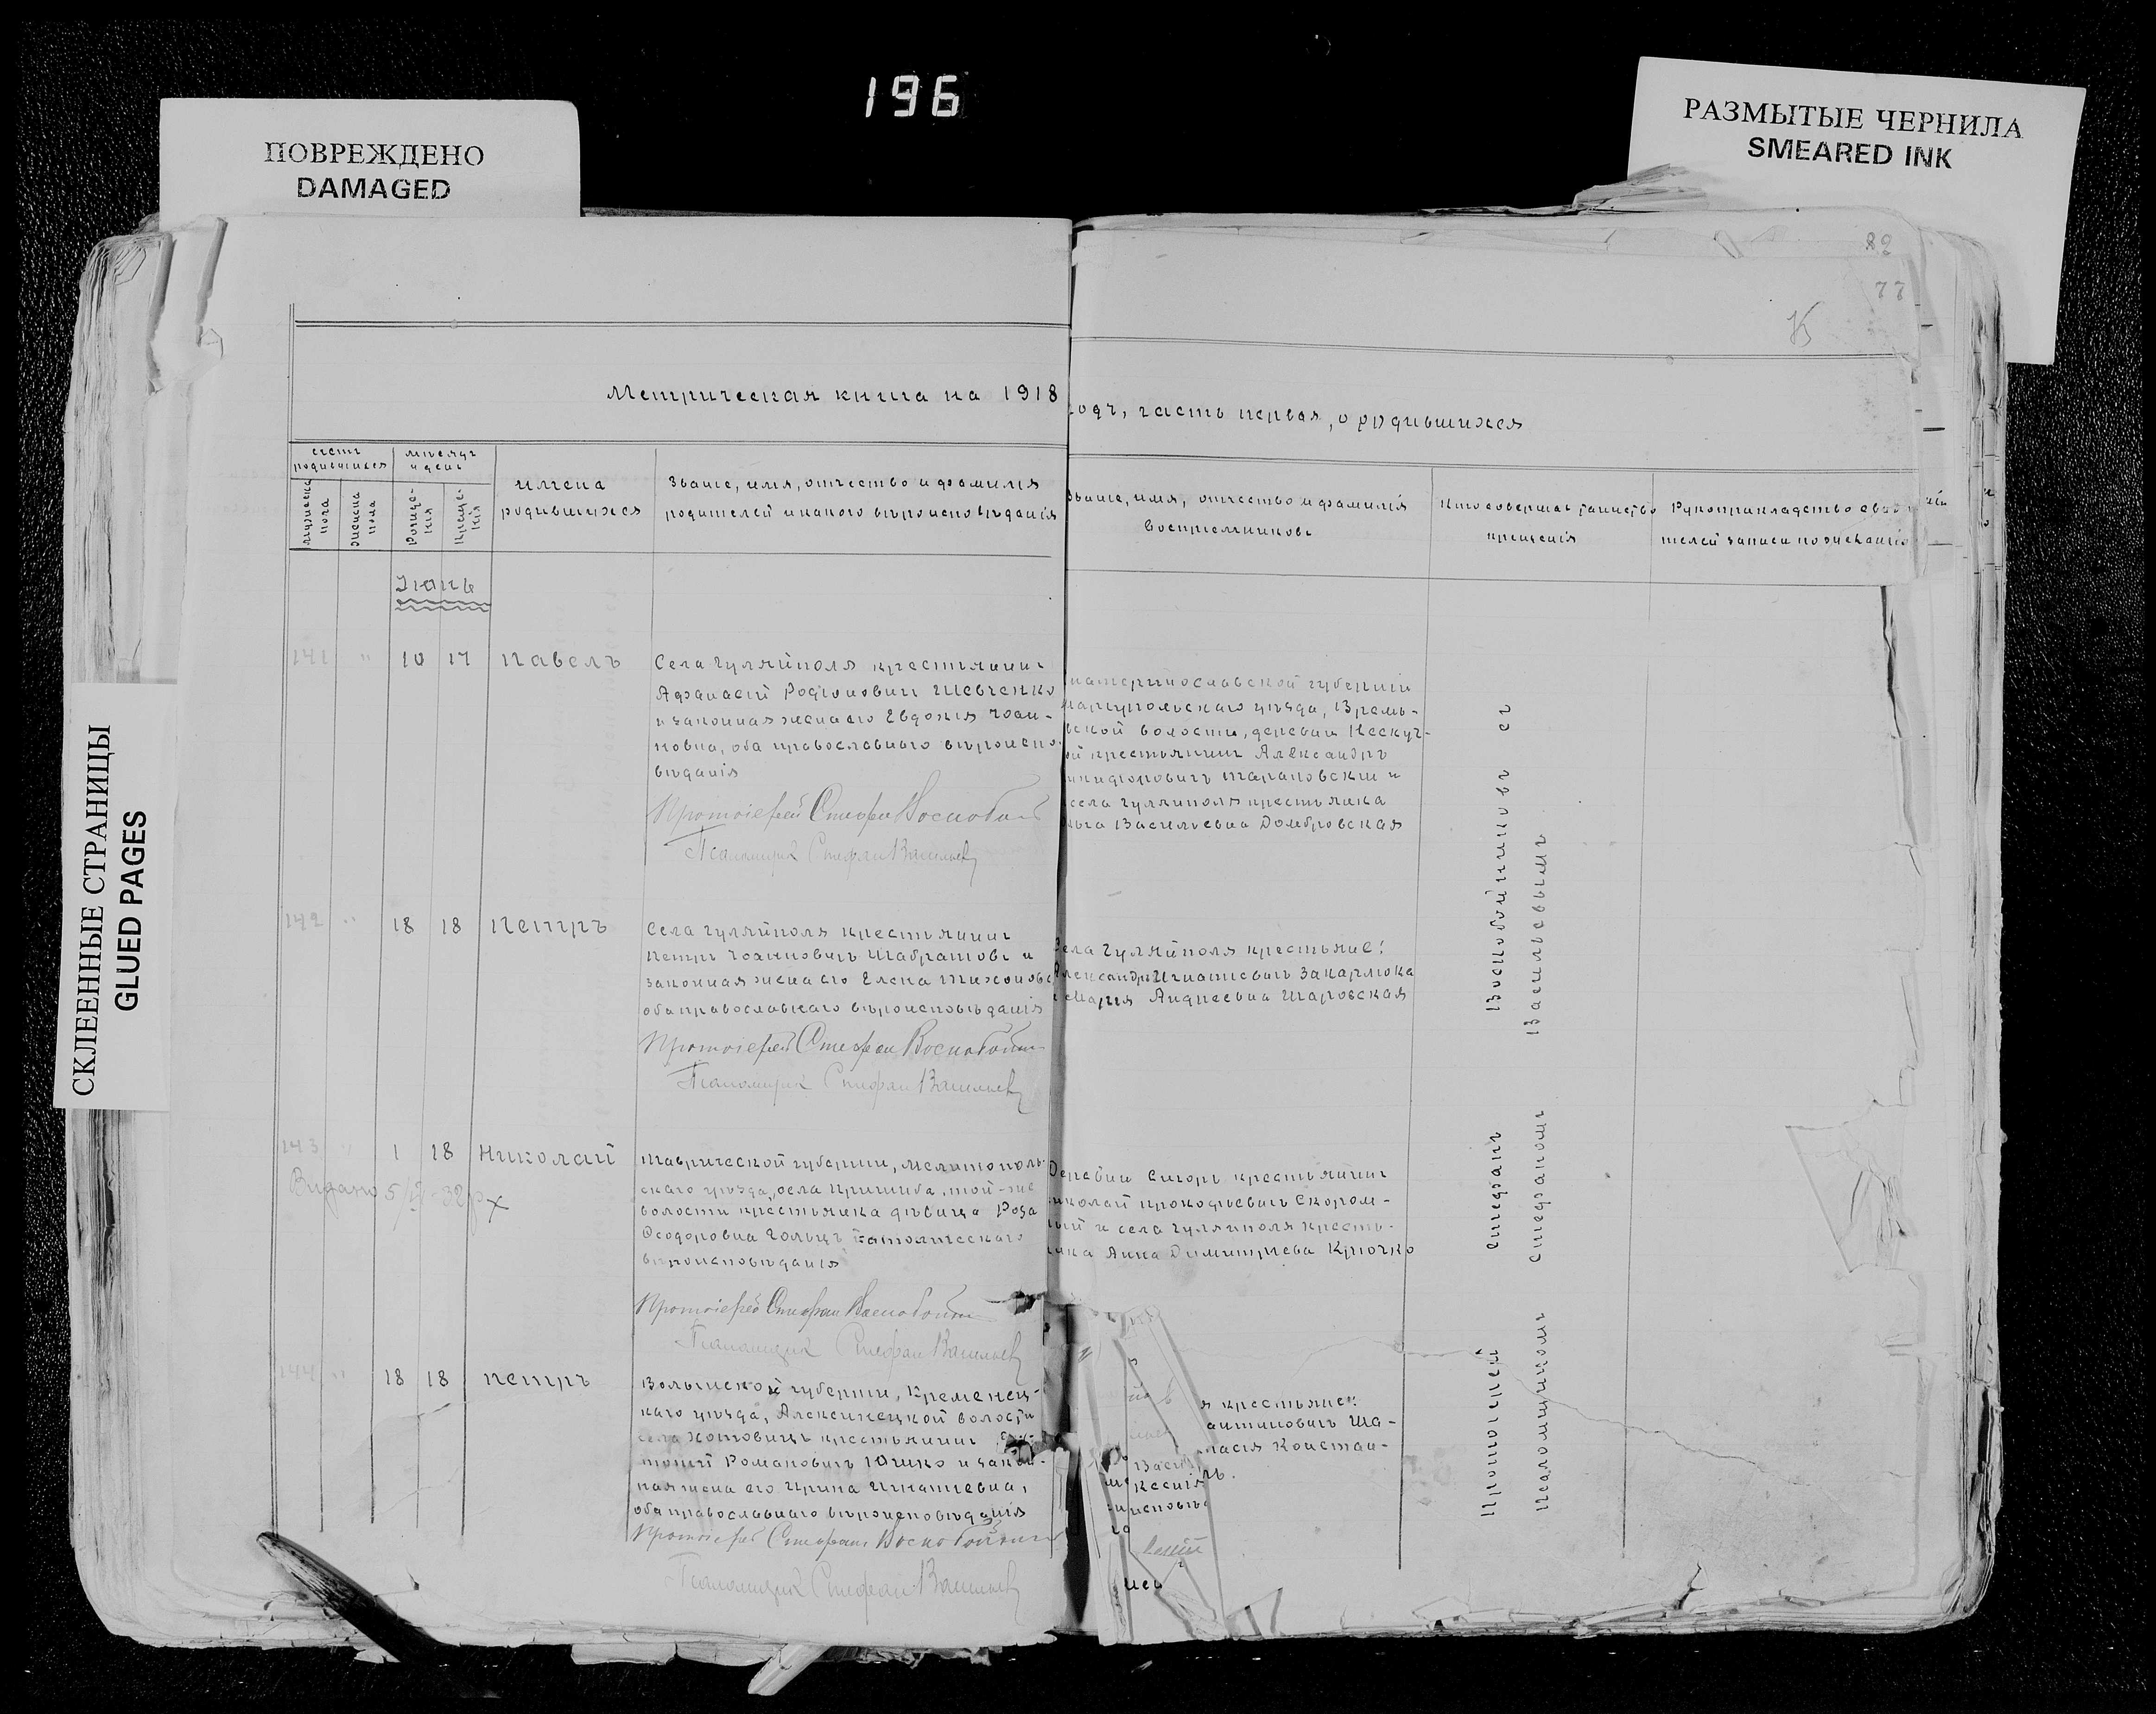 196
ПОВРЕЖДЕНО
DAMAGED
РАЗМЫТЫЕ ЧЕРНИЛА
SMEARED INK
СКЛЕЕННЫЕ СТРАНИЦЫ
GLUED PAGES
82
77
Метрическая книга на 1918
годъ, часть первая, о родившихся
счетъ
родившихся
мѣсяцъ
и день
мужеска
пола
женска
пола
Рожде-
нія
Креще-
нія
имена
родившихся
Званіе, имя, отчество и фамилія
родителей и какого вѣроисповѣданія
Званіе, имя, отчество и фамилія
воспріемниковъ
Кто совершалъ таинство
крещенія
Рукоприкладство свидѣ
телей записи по желанію
Іюнь
141 " 10 17 Павелъ
Села Гуляйполя крестьянинъ
Афанасій Родіоновичъ Шевченко
и законная жена его Евдокія Іоан-
новна, оба православнаго вѣроиспо-
вѣданія
Протоіерей Стефан Воскобой
Псаломщик Стефан Васильев
катеринославской губерніи
Маріупольскаго уѣзда, Времь-
вской волости, деревни Нескуч-
ой крестьянинъ Александръ
Тарановскій и
села Гуляйполя крестьянка
Васильевна Домбровская
142 " 18 18 Петръ
Села Гуляйполя крестьянинъ
Петръ Іоанновичъ Шабратовъ и
законная жена его Елена Тихоновна
оба православнаго вѣроисповѣданія
Протоіерей Стефан Воскобой
Псаломщик Стефан Васильев
Села Гуляйполя крестьяне:
Александръ Игнатіевичъ Закарлюка
и Марія Андреевна Шаровская
143 " 1 18 Николай
Видано 5/
Таврической губерніи, Мелитополь-
скаго уѣзда, села Пришиба, той-же
волости крестьянка дѣвица Роза
Ѳеодоровна Гольцъ католическаго
вѣроисповѣданія
Протоіерей Стефан Воскобой
Псаломщик Стефан Васильев
Деревни крестьянинъ
иколай Прокофьевичъ Скором-
ный и села Гуляйполя кресть-
янка Анна Димитріева Крючко
144 " 18 18 Петръ
Волынской губерніи, Кременец-
каго уѣзда, Алексинецкой волости
села крестьянинъ
Романовичъ Юшко и закон-
ная жена его Ирина Игнатіевна,
оба православнаго вѣроисповѣданія
Протоіерей Стефан Воскобой
Псаломщик Стефан Васильев
я крестьяне:
антиновичъ Ша-
тасія Констан-
Протоіерей Стефанъ Воскобойниковъ съ
Псаломщикомъ Стефаномъ Васильевымъ